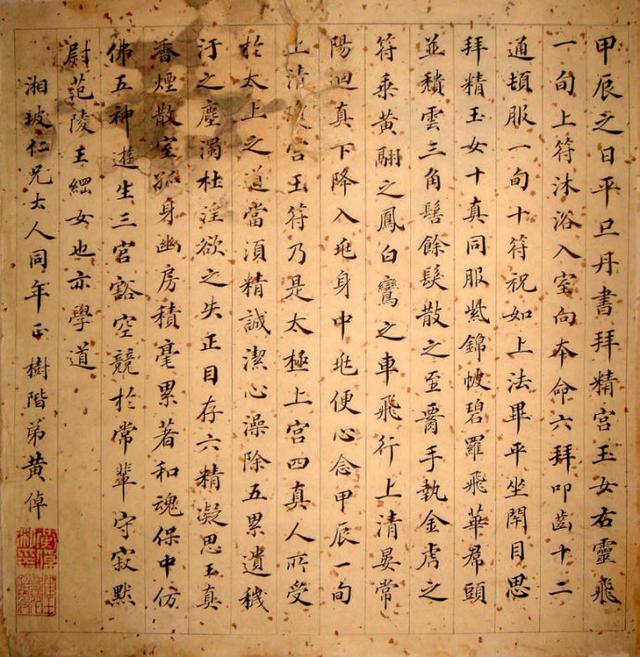 甲辰之日平旦丹書拜精宮玉女右靈飛
一旬上符沐浴入室向本命六拜叩齒十二
通頓服一旬十符祝如上法畢平坐閉目思
拜精玉女十真同服紫錦帔碧羅飛華帬頭
並穨雲三角髻餘髮散之至署手執金虎之
符乘黃翮之鳳白鸞之車飛行上清晏常
陽迴真下降入兆身中兆便心念甲辰一旬
上清瓊宮玉符乃是太極上宮四真人所受
於太上之道當須精誠潔心澡除五累遺穢
汙之塵濁杜淫欲之失正目存六精凝思玉真
香煙散室孤身幽房積毫累著和魂保中仿
佛五神遊生三宮豁空競於常輩守寂默
尉范陵王綱女也亦學道
湘坡仁兄大人同年正樹階弟黃倬